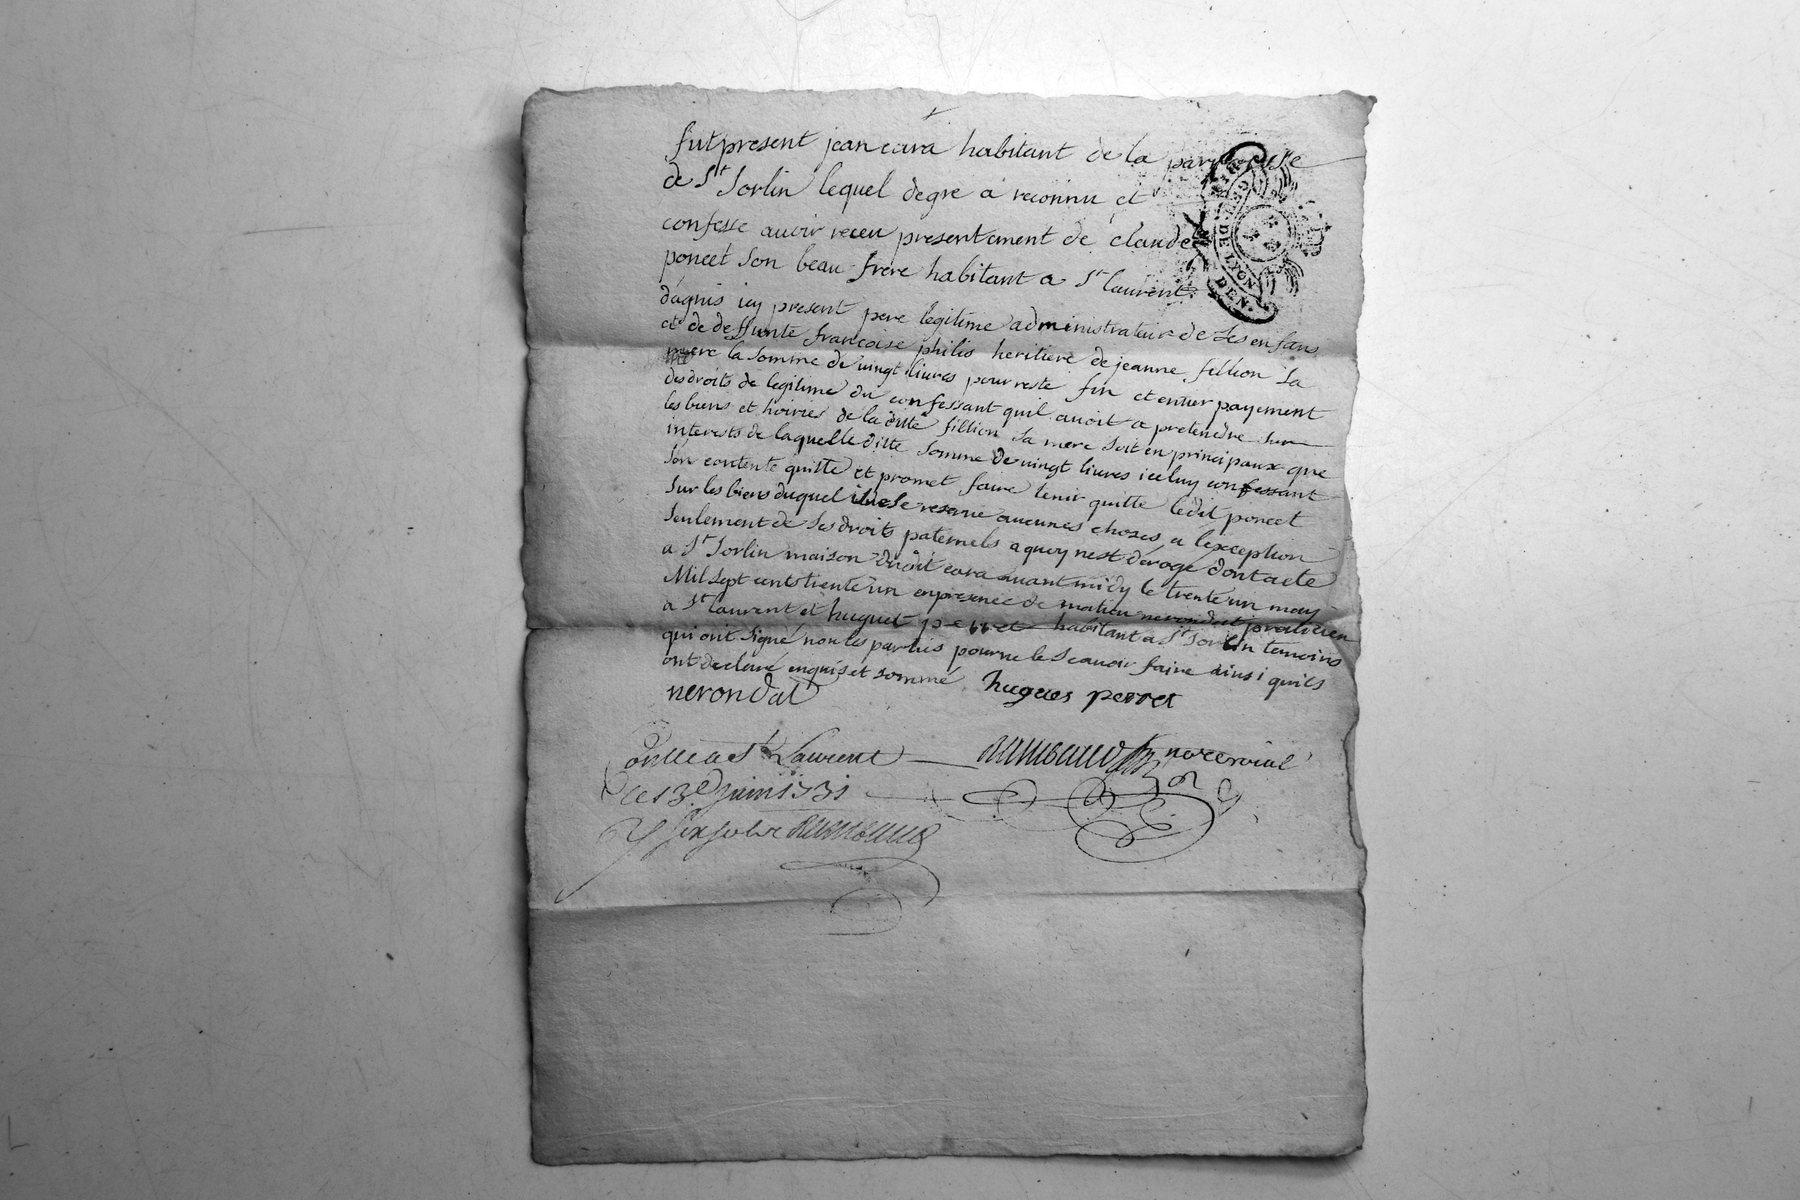 fut present jean cara habitant de la parroisse
de St Sorlin lequel de gre a reconnu et
confesse auoir receu presentement de claude
poncet son beau frere habitant a St laurent
dagnis icy present pere legitime administrateur de ses enfans
et de deffunte francoise philis heritiere de jeanne fillion sa
mere la somme de vingt liures pour reste fin et entier payement
des droits de legitime du confessant quil auoit a pretendre sur
les biens et hoiries de la ditte fillion sa mere soit en principaux que
interests de laquelle ditte somme de vingt liures iceluy confessant
son contente quitte et promet faire tenir quitte ledit poncet
sur les biens duquel il ne se reserve aucunes choses a lexception
seulement de ses droits paternels a quoy nest deroge dont acte
a St Sorlin maison dudit cara auant midy le trente un may
Mil sept cents trente un en presence de matieu nerondat praticien
a St laurent et huguet perret habitant a St Sorlin temoins
qui ont signé non les parties pour ne le scauoir faire ainsi quils
ont declaré enquis et sommé
nerondat hugues perret
Conlle a St Laurent rambaud nore roial
ce 13e juin 1731
rambaud
GEN. DE LYON
DEN.